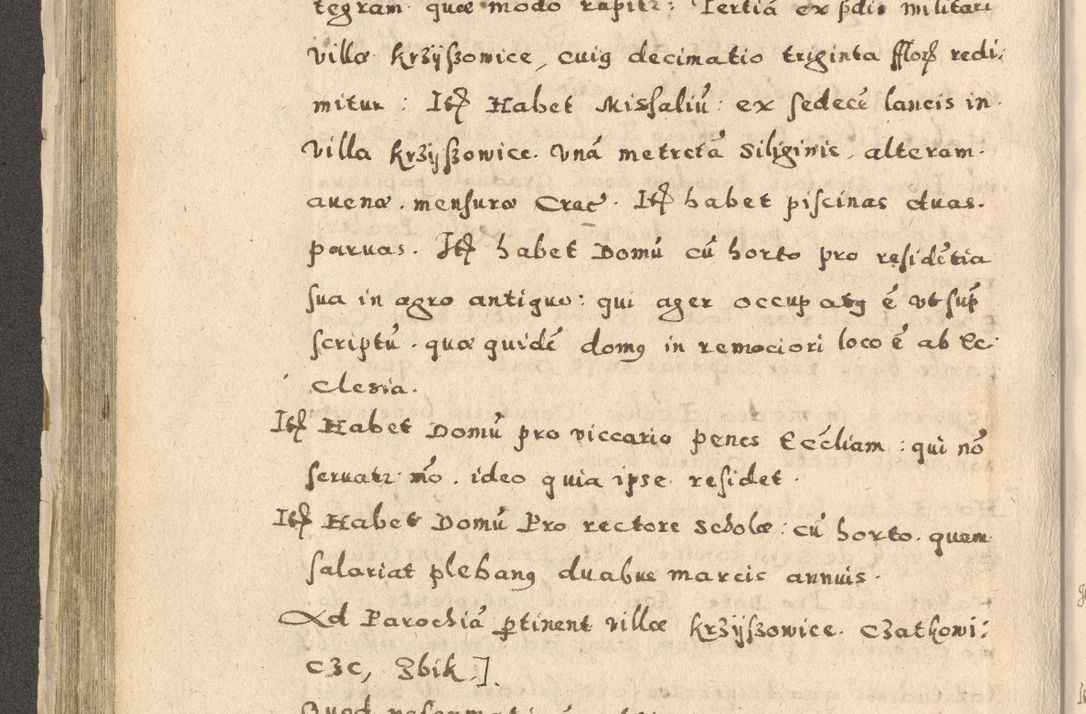 tegram quæ modo rapitr: Tertiā ex pdio militari
villæ krzÿszowice, cuiꝯ decimatio triginta fflor redi-
mitur: Itē Habet Missaliū: ex sedecē laneis in
villa krzÿszowice. Vnā metretā Siliginis, alteram
auenæ. mensuræ Crac. Itē habet piscinas duas.
paruas. Itē habet Domū cū horto pro residētia
sua in agro antiquo: qui ager occupatꝯ ē vt sup
scriptū. quæ quidē domꝯ in remociori loco ē ab Ec-
clesia.
Itē Habet Domū pro viccario penes Eccliam: qui nō
seruatr mō. ideo quia ipse residet.
Itē Habet Domū Pro rectore Scholæ: cū horto. quem
salariat plebanꝯ duabus marcis annuis.
Ad Parochiā ꝑtinent villæ krzÿszowice. Czatkowi-
cze, Zbik.]
Quod reformati